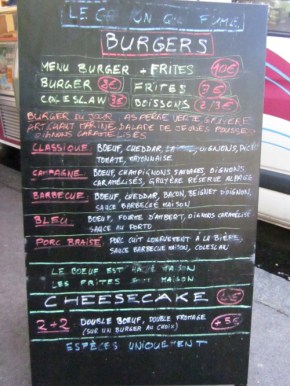 LE CAMION QUI FUME
BURGERS
MENU BURGER + FRITES 10€
BURGER 8€ FRITES 3€
COLESLAW 3€ BOISSONS 2/3€
BURGER DU JOUR ASPERGE VERTE GRUYERE
ARTICHAUT MARINÉ SALADE DE JEUNES POUSSES
OIGNONS CARAMELISÉS
CLASSIQUE BOEUF, CHEDDAR, OIGNONS,
TOMATE, MAYONNAISE
CAMPAGNE BOEUF, CHAMPIGNONS SAUVAGES, OIGNONS
CARAMÉLISÉS, GRUYÈRE RÉSERVE
BARBECUE BOEUF, CHEDDAR, BACON, BEIGNET D'OIGNON,
SAUCE BARBECUE MAISON
BLEU BOEUF, FOURME D'AMBERT, OIGNONS CARAMÉLISÉS
SAUCE AU PORTO
PORC BRAISÉ PORC CUIT LONGUEMENT À LA BIÈRE,
SAUCE BARBECUE MAISON, COLESLAW
LE BOEUF EST HACHÉ MAISON
LES FRITES SONT MAISON
CHEESECAKE
2+2 DOUBLE BOEUF, DOUBLE FROMAGE +3€
(SUR UN BURGER AU CHOIX)
ESPÈCES UNIQUEMENT